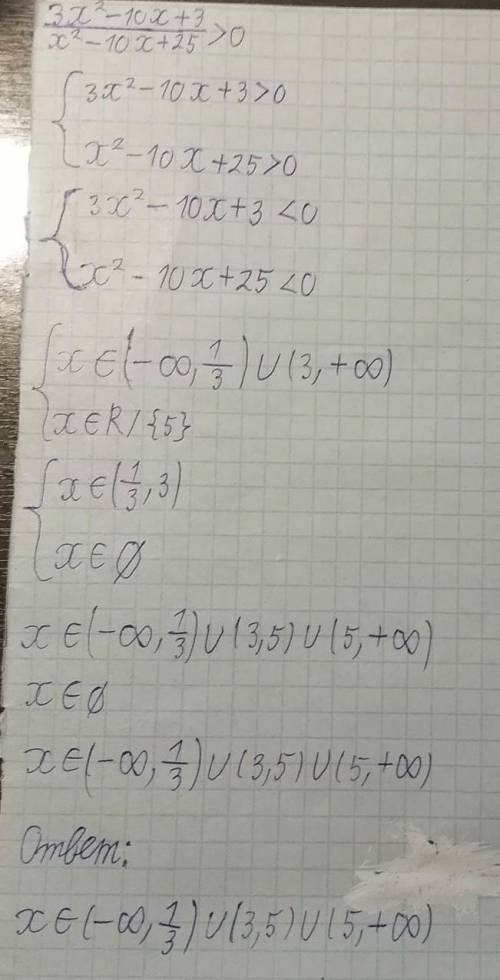 3x²-10x+3
x²-10x+25 >0
{ 3x²-10x+3>0
x²-10x+25>0
{ 3x²-10x+3<0
x²-10x+25<0
{ x∈(-∞, 1/3)∪(3,+∞)
x∈R/{5}
{ x∈(1/3,3)
x∈∅
x∈(-∞, 1/3)∪(3,5)∪(5,+∞)
x∈∅
x∈(-∞, 1/3)∪(3,5)∪(5,+∞)
Ответ:
x∈(-∞, 1/3)∪(3,5)∪(5,+∞)